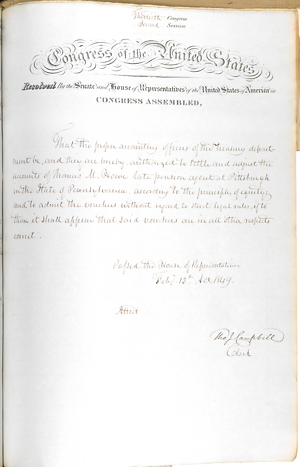 Thirtieth Congress
Second Session
Congress of the United States,
Resolved by the Senate and House of Representatives of the United States of America in
CONGRESS ASSEMBLED,
That the proper accounting officers of the Treasury depart
ment be, and they are hereby authorized to settle and adjust the
accounts of Thomas M. Howe late pension agent at Pittsburgh
in the State of Pennsylvania, according to the principles of equity;
and to admit the vouchers without regard to strict legal rules, if to
them it shall appear that said vouchers are in all other respects
correct.
Passed the House of Representatives
Feby 12th 1849.
Attest
Tho J. Campbell
Clerk